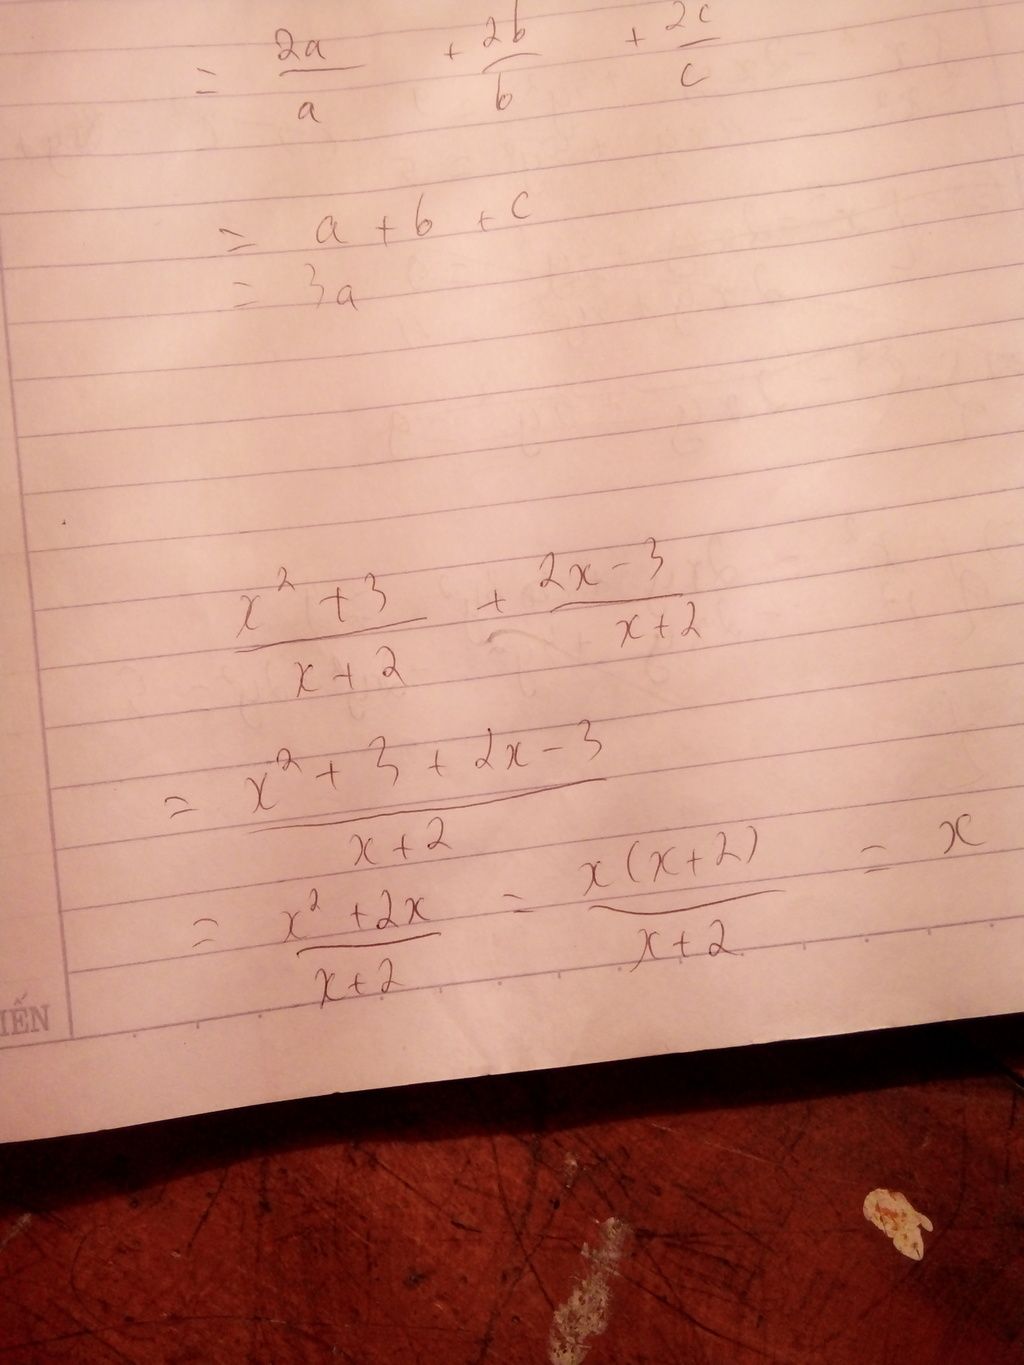 = 2a/a + 2b/b + 2c/c
= a + b + c
= 3a
x² + 3/x + 2 + 2x - 3/x + 2
= x² + 3 + 2x - 3/x + 2
= x² + 2x/x + 2 = x(x + 2)/x + 2 = x
IẾN